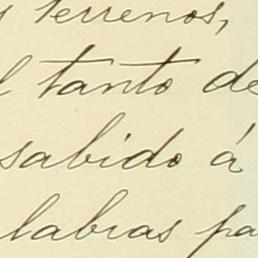 s terrenos,
l tanto de
sabido á
labras pa